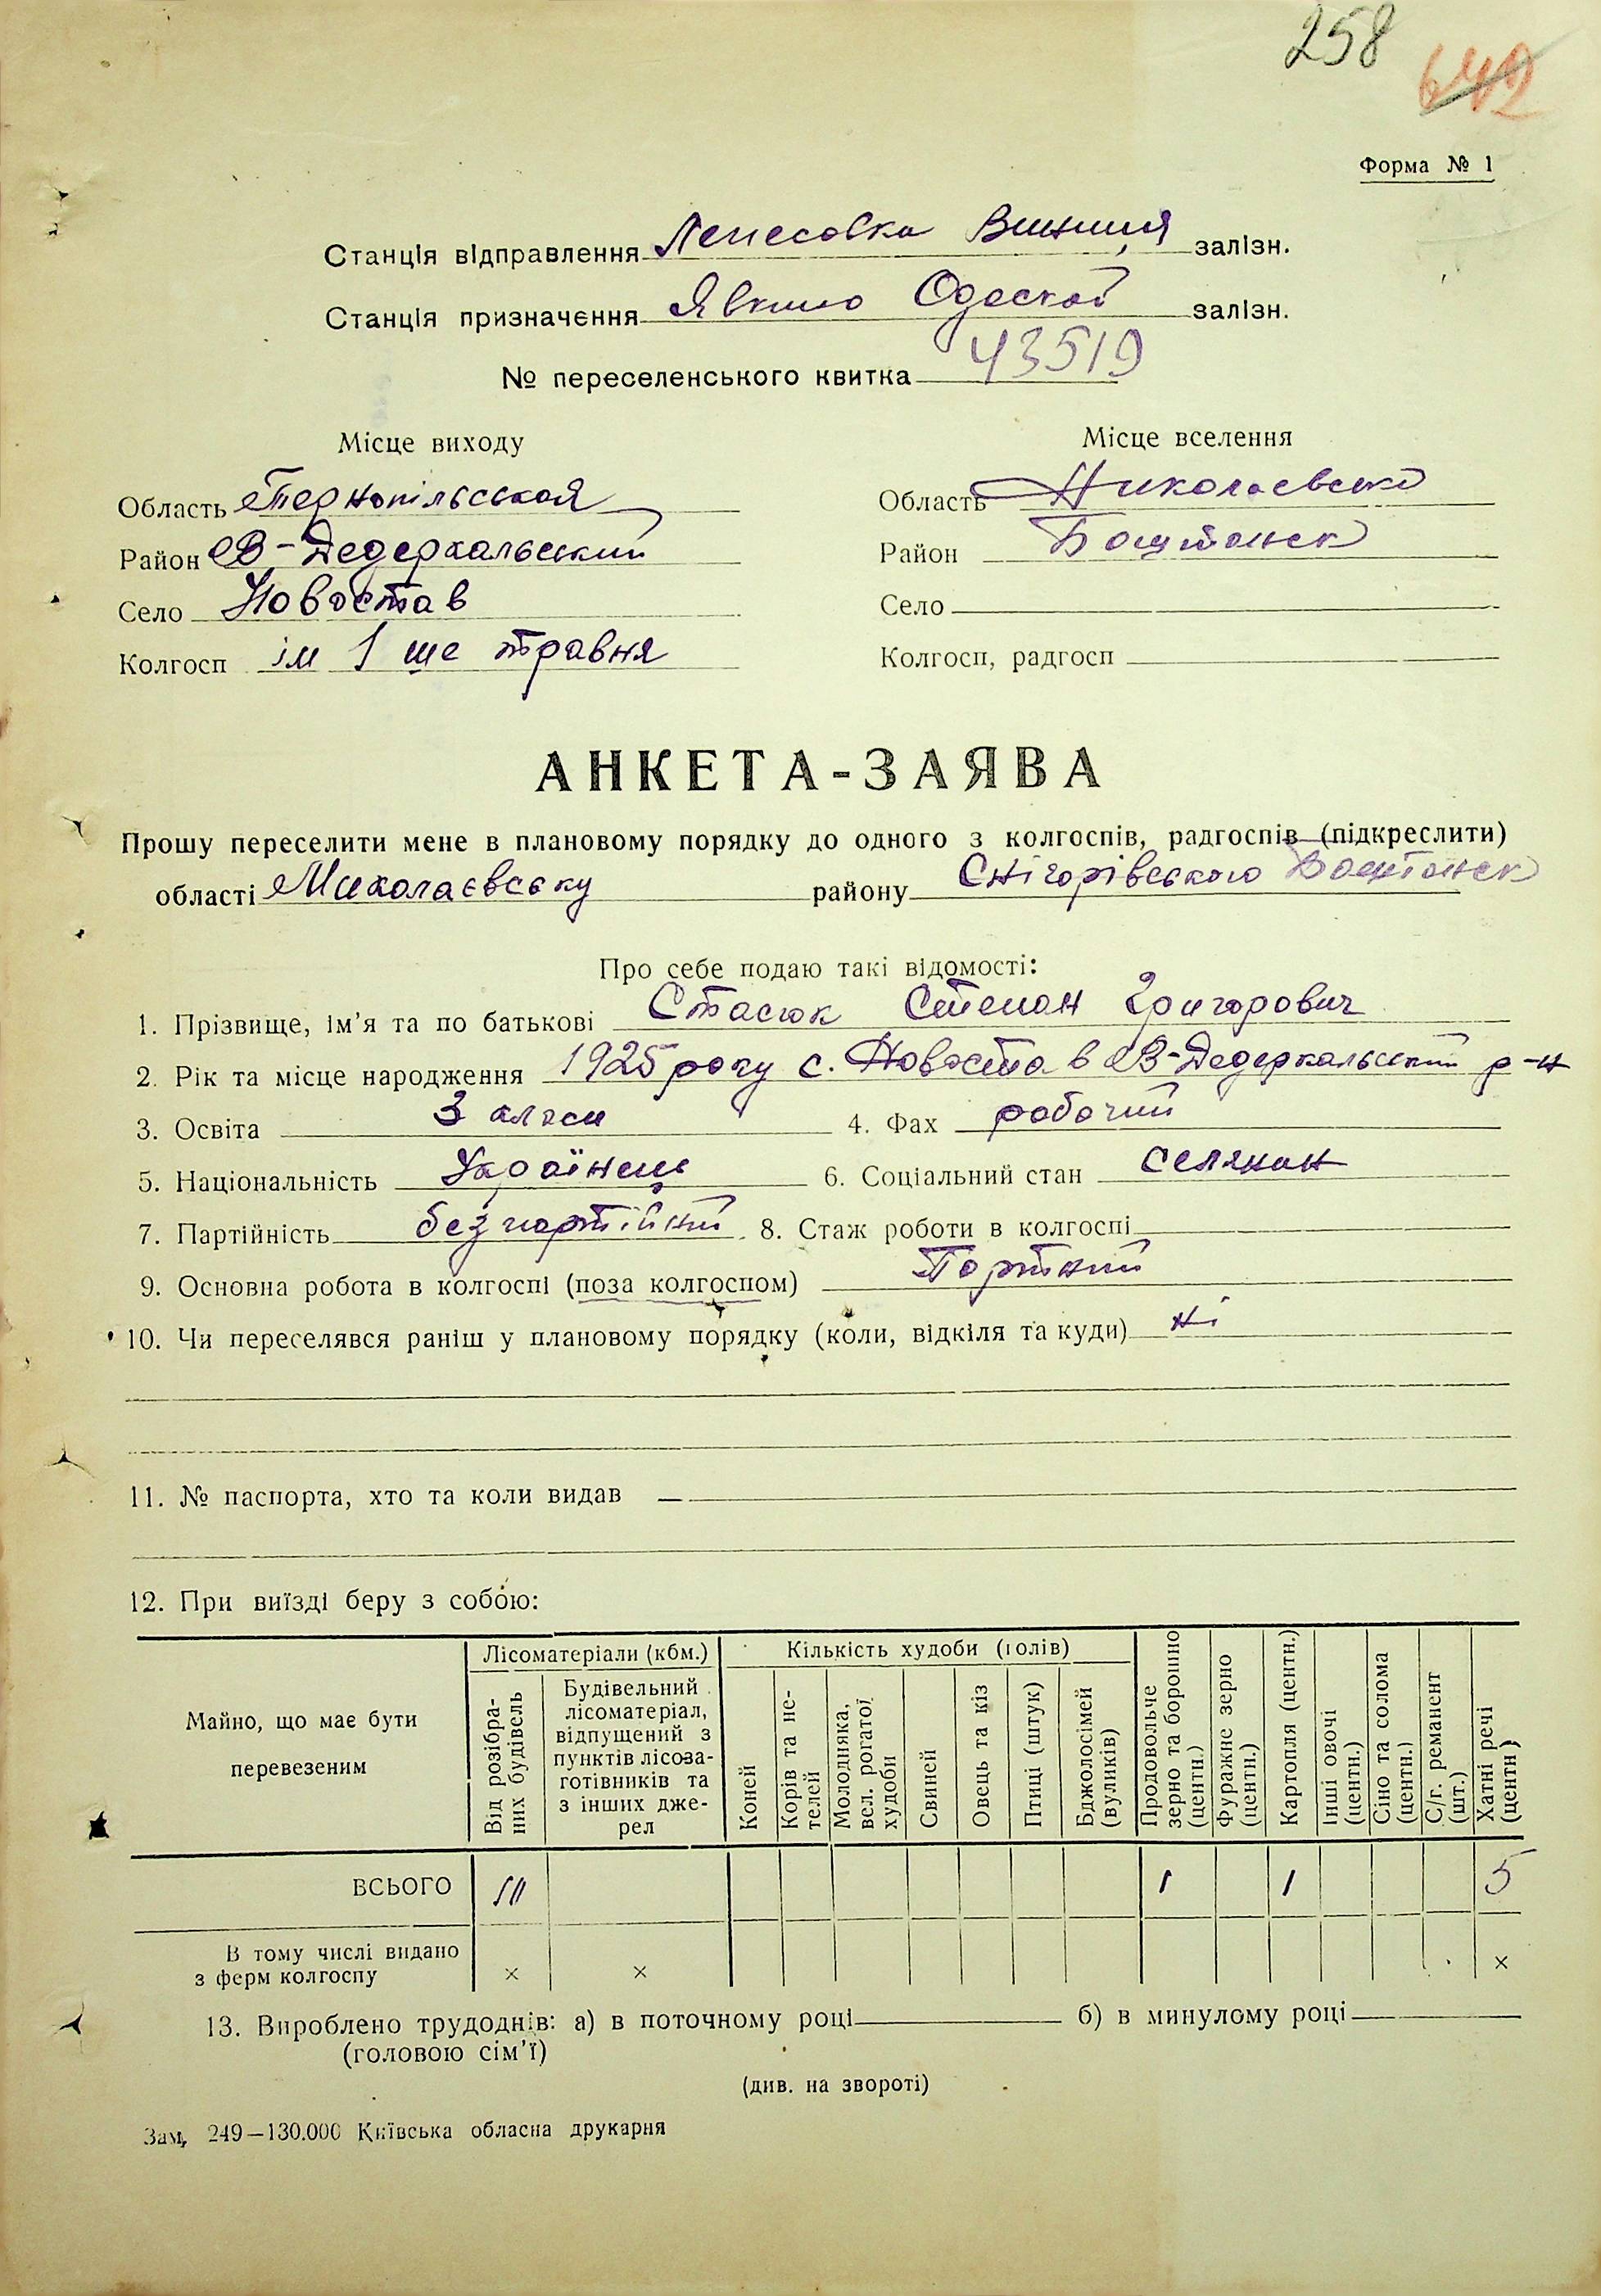 258 642
Форма № 1
Станція відправлення Лепесовка Винниця залізн.
Станція призначення Явкино Одеской залізн.
№ переселенського квитка 43519
Місце виходу
Область Тернопільськая
Район В-Дедеркальський
Село Новостав
Колгосп ім 1 ше травня
Місце вселення
Область Николаевско
Район Баштанск
Село
Колгосп, радгосп
АНКЕТА-ЗАЯВА
Прошу переселити мене в плановому порядку до одного з колгоспів, радгоспів (підкреслити)
області Миколаєвську району Снігорівського Баштанск
Про себе подаю такі відомості:
1. Прізвище, ім'я та по батькові Стасюк Степан Григорович
2. Рік та місце народження 1925 року с. Новостав В-Дедеркальський р-н
3. Освіта 3 класи 4. Фах робочий
5. Національність Українець 6. Соціальний стан селянин
7. Партійність безпартійний 8. Стаж роботи в колгоспі
9. Основна робота в колгоспі (поза колгоспом) Портний
10. Чи переселявся раніш у плановому порядку (коли, відкіля та куди) ні
11. № паспорта, хто та коли видав —
12. При виїзді беру з собою:
Майно, що має бути
перевезеним
Лісоматеріали (кбм.)
Від розібра-
них будівель
Будівельний
лісоматеріал,
відпущений з
пунктів лісоза-
готівників та
з інших дже-
рел
Кількість худоби (голів)
Коней
Корів та не-
телей
Молодняка,
вел. рогатої
худоби
Свиней
Овець та кіз
Птиці (штук)
Бджолосімей
(вуликів)
Продовольче
зерно та борошно
(центн.)
Фуражне зерно
(центн.)
Картопля (центн.)
Інші овочі
(центн.)
Сіно та солома
(центн.)
С/г. реманент
(шт.)
Хатні речі
(центн)
ВСЬОГО 1 1 5
В тому числі видано
з ферм колгоспу × × ×
13. Вироблено трудоднів: а) в поточному році б) в минулому році
(головою сім'ї)
(див. на звороті)
Зам. 249—130.000 Київська обласна друкарня